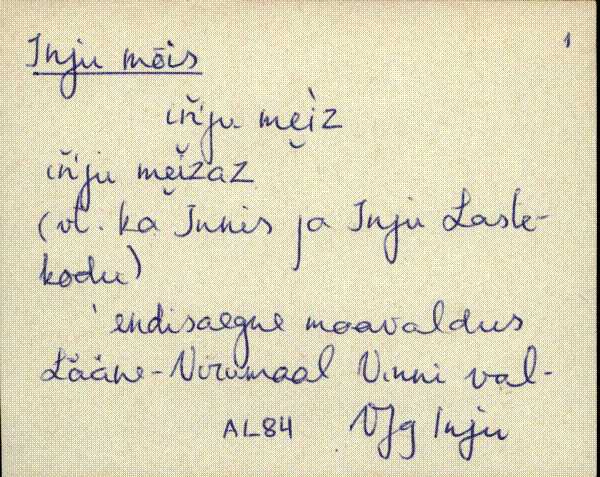 Inju mõis 1
iň'ju mèiz
iň'ju meizaz
(vt. ka Innis ja Inju Laste-
kodu)
'endisaegne maavaldus
Lääne-Virumaal Vinni val-
AL84 VJg Inju